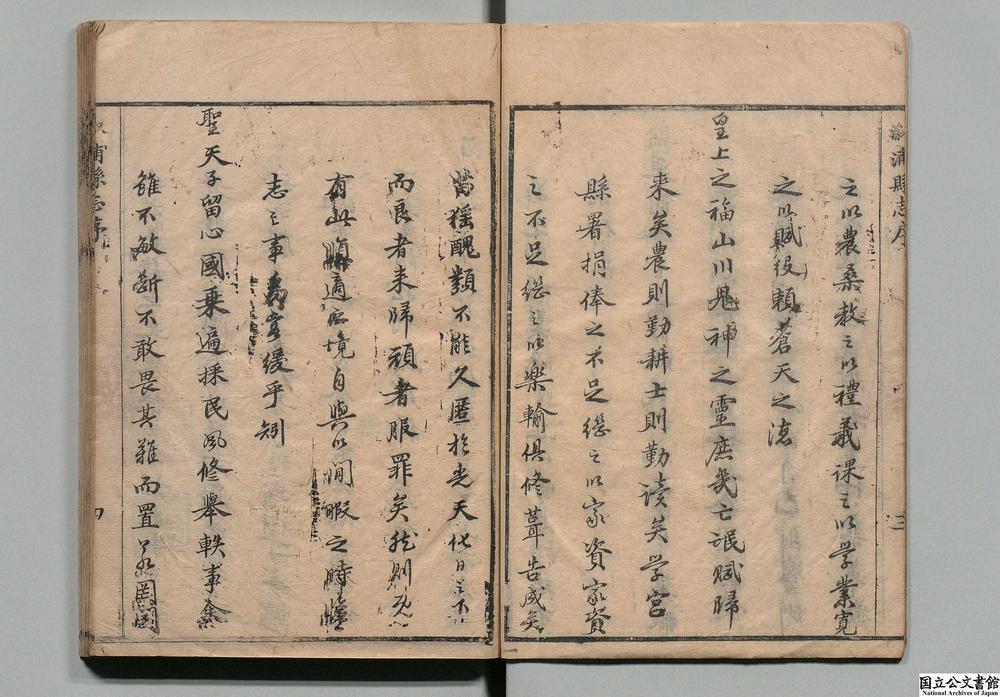 溆浦縣志序
三
之以農桑教之以禮義課之以学業寬
之以賦役賴蒼天之德
皇上之福山川鬼神之靈庶幾亡氓賦歸
来矣農則勤耕士則勤读矣学宮
縣署捐俸之不足繼之以家資家資
之不足繼之以樂輸俱修葺告成矣
苗猺醜類不能久匿於光天化日之下
而良者来歸頑者服罪矣然則既
有此順適之境自與以閒暇之時
志之事 緩乎矧
聖天子留心國乘遍採民風修舉軼事余
雖不敏斷不敢畏其難而置
浦縣志序
四
国立公文書館
National Archives of Japan